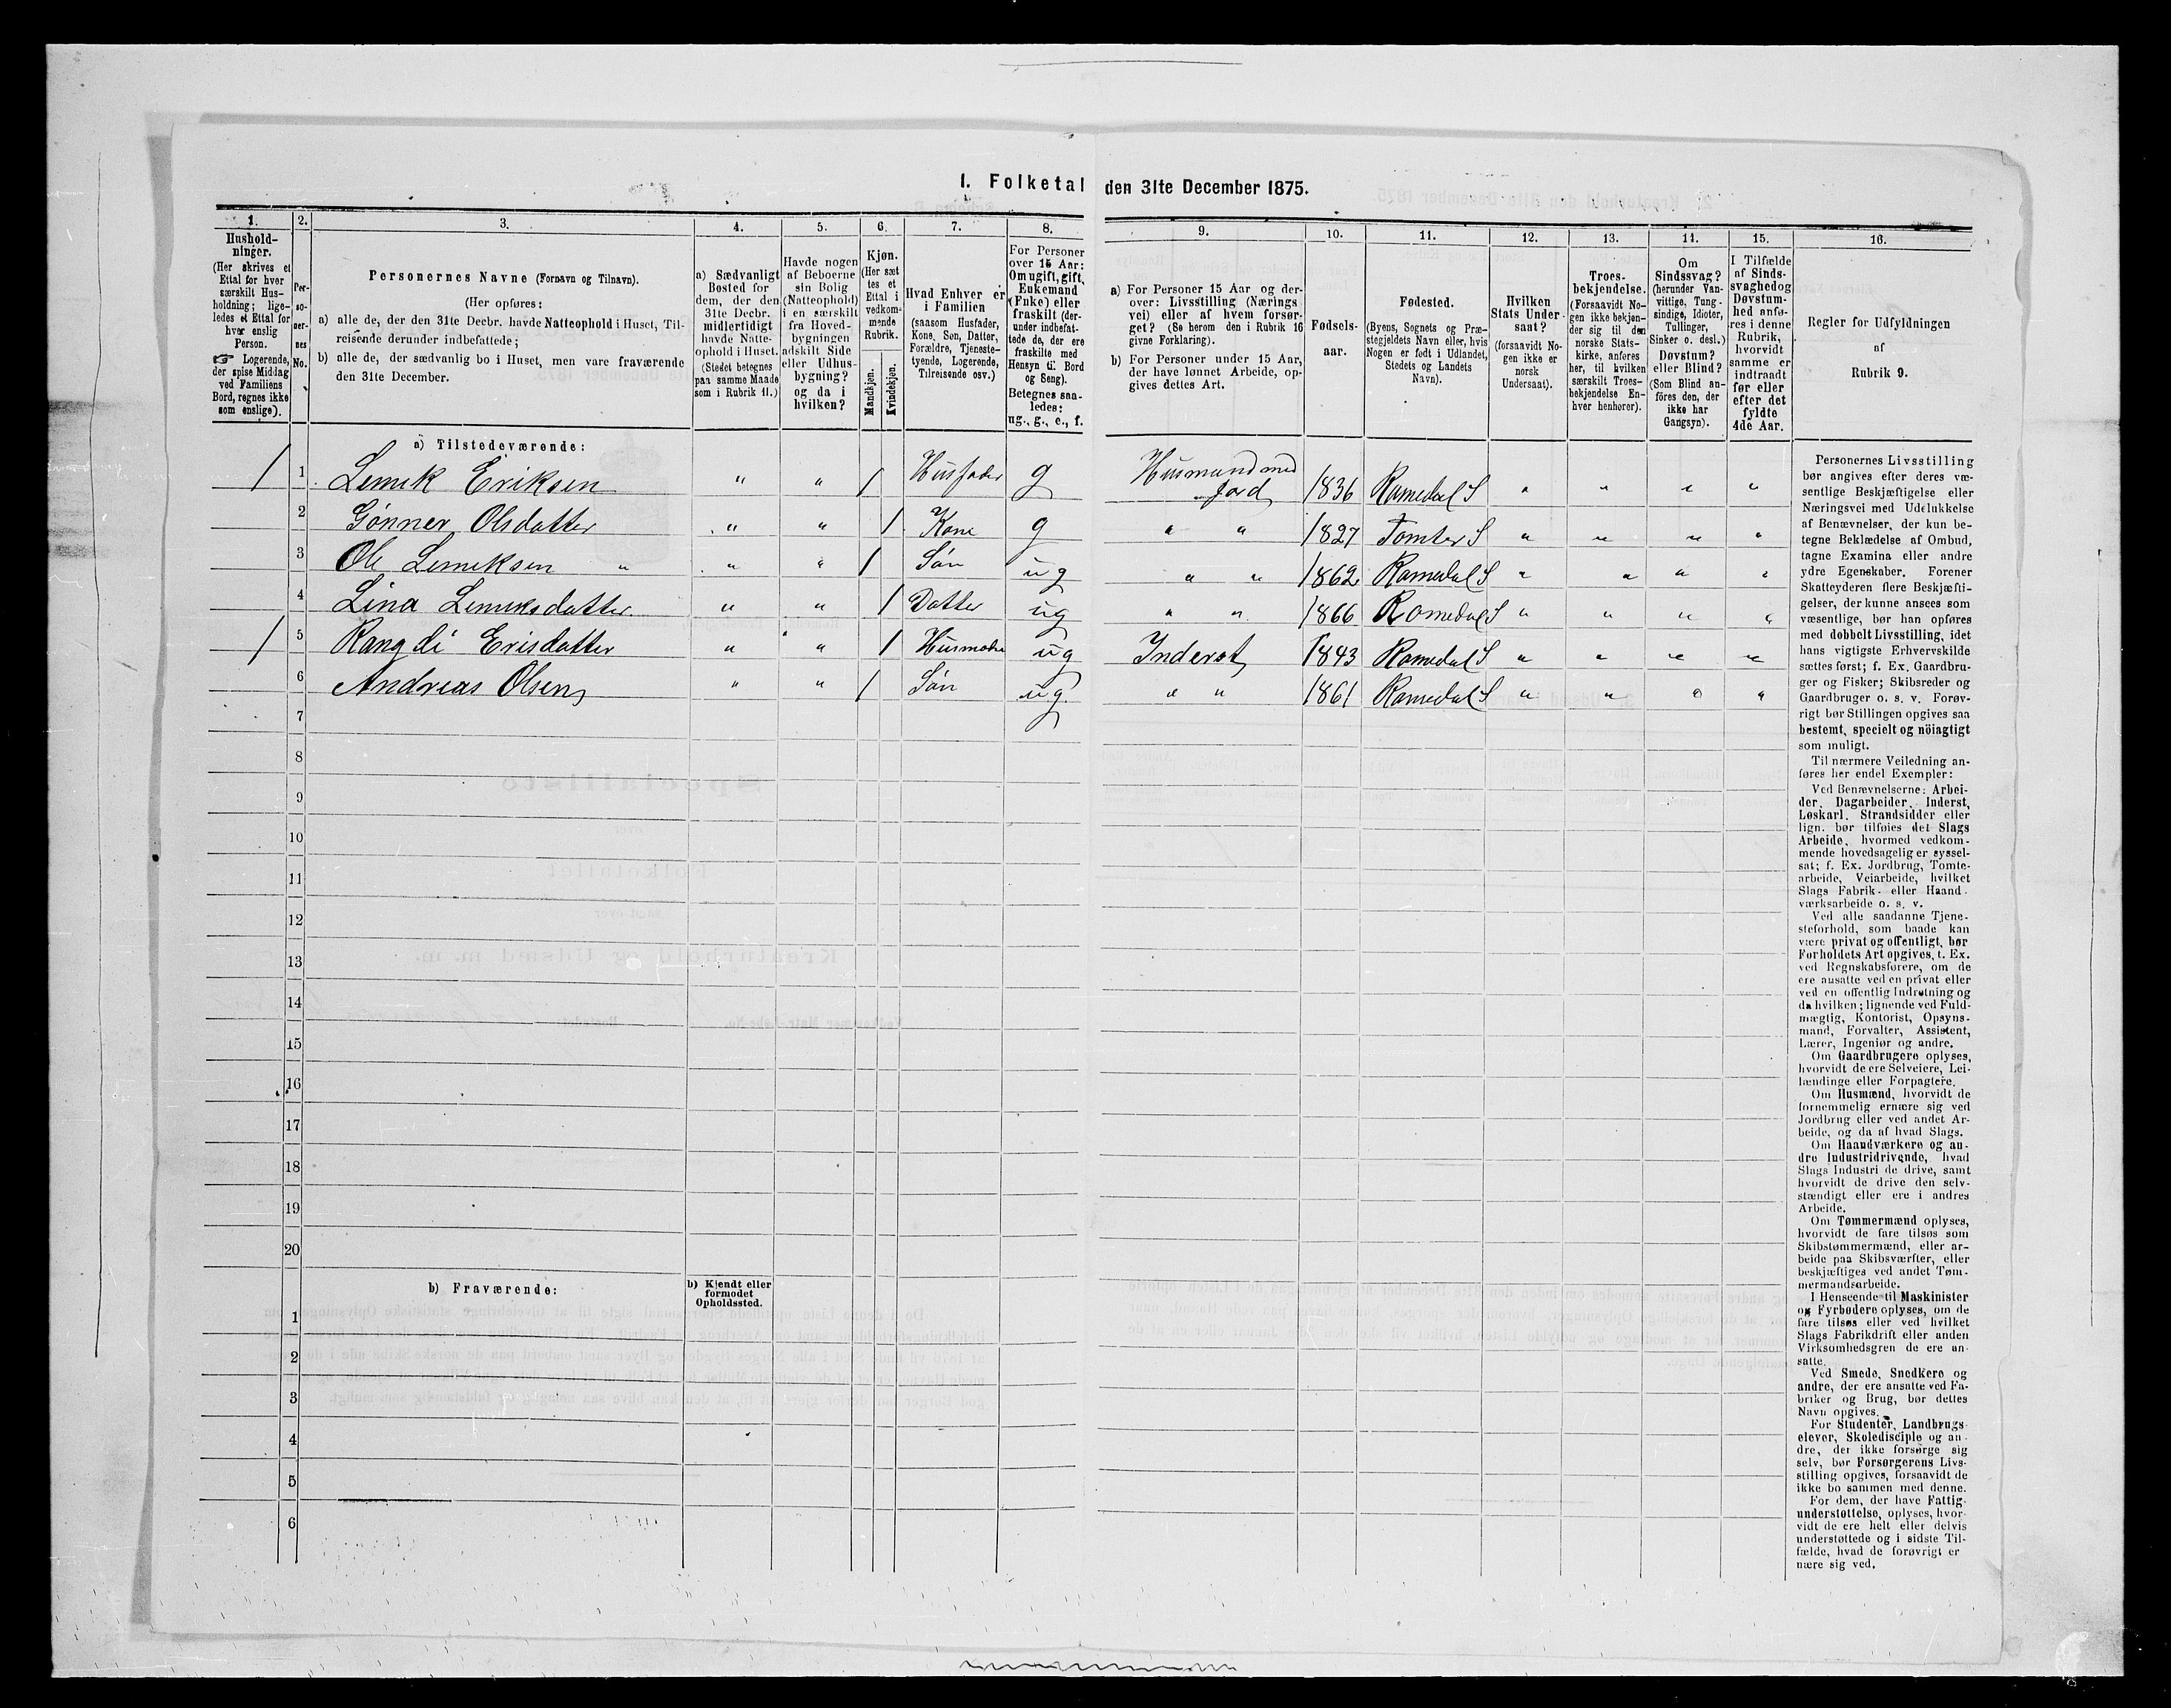 1. Folketal den 31te December 1875.
1. 2. 3. 4. 5. 6. 7. 8. 9. 10. 11. 12. 13. 14. 15. 16.
Hushold-
ninger.
(Her skrives et
Ettal for hver
særskilt Hus-
holdning; lige-
ledes et Ettal for
hver enslig
Person.
☞ Logerende,
der spise Middag
ved Familiens
Bord, regnes ikke
som enslige).
Per-
so-
ner-
nes
No.
Personernes Navne (Fornavn og Tilnavn).
(Her opføres:
a) alle de, der den 31te Decbr. havde Natteophold i Huset, Til-
reisende derunder indbefattede;
b) alle de, der sædvanlig bo i Huset, men vare fraværende
den 31te December.
a) Sædvanligt
Bosted for
dem, der den
31te Decbr.
midlertidigt
havde Natte-
ophold i Huset.
(Stedet betegnes
paa samme Maade
som i Rubrik 11.)
Havde nogen
af Beboerne
sin Bolig
(Natteophold)
i en særskilt
fra Hoved-
bygningen
adskilt Side
eller Udhus-
bygning?
og da i
hvilken?
Kjøn.
(Her sæt
tes et
Ettal i
vedkom-
mende
Rubrik.
Mandkjøn.
Kvindekjøn.
Hvad Enhver er
i Familien
(saasom Husfader,
Kone, Søn, Datter,
Forældre, Tjeneste-
tyende, Logerende,
Tilreisende osv.)
For Personer
over 15 Aar:
Om ugift, gift,
Enkemand
(Enke) eller
fraskilt (der-
under indbefat-
tede de, der ere
fraskilte med
Hensyn til Bord
og Seng).
Betegnes saa-
ledes:
ug., g., e., f.
a) For Personer 15 Aar og der-
over: Livsstilling (Nærings
vei) eller af hvem forsør-
get? (Se herom den i Rubrik 16
givne Forklaring).
b) For Personer under 15 Aar,
der have lønnet Arbeide, op-
gives dettes Art.
Fødsels-
aar.
Fødested.
(Byens, Sognets og Præ-
stegjeldets Navn eller, hvis
Nogen er født i Udlandet,
Stedets og Landets
Navn).
Hvilken
Stats Under
saat?
(forsaavidt No-
gen ikke er
norsk
Undersaat).
Troes-
bekjendelse.
(Forsaavidt No-
gen ikke bekjen-
der sig til den
norske Stats-
kirke, anføres
her, til hvilken
særskilt Troes-
bekjendelse En-
hver henhører).
Om
Sindssvag?
(herunder Van-
vittige, Tung-
sindige, Idioter,
Tullinger,
Sinker o. desl.)
Døvstum?
eller Blind?
(Som Blind an-
føres den, der
ikke har
Gangsyn).
I Tilfælde
af Sinds-
svaghed og
Døvstum-
hed anfø-
res i denne
Rubrik,
hvorvidt
samme er
indtraadt
før eller
efter det
fyldte
4de Aar.
Regler for Udfyldningen
af
Rubrik 9.
a) Tilstedeværende:
1 1 Lemek Eriksen " " 1 Husfader g Husmand med Jord 1836 Romedal S " " " "
2 Gønner Olsdatter " " 1 Kone g " " 1827 Tomter S " " " "
3 Ole Lemeksen " " " 1 Søn ug " " 1862 Romedal S " " " "
4 Lina Lemeksdatter " " 1 Datter ug " " 1866 Romedal S " " " "
1 5 Rangdi Erisdatter " " 1 Husmoder ug Inderst 1843 Romedal S " " " "
6 Andreas Olsen " " 1 Søn ug. " " 1861 Romedal S " " " "
7
8
9
10
11
12
13
14
15
16
17
18
19
20
b) Fraværende:
b) Kjendt eller
formodet
Opholdssted.
1
2
3
4
5
6
Personernes Livsstilling
bør angives efter deres væ-
sentlige Beskjæftigelse eller
Næringsvei med Udelukkelse
af Benævnelser, der kun be-
tegne Beklædelse af Ombud,
tagne Examina eller andre
ydre Egenskaber. Forener
Skatteyderen flere Beskjæfti-
gelser, der kunne ansees som
væsentlige, bør han opføres
med dobbelt Livsstilling, idet
hans vigtigste Erhvervskilde
sættes først; f. Ex. Gaardbru-
ger og Fisker; Skibsreder og
Gaardbruger o. s. v. Forøv-
rigt bør Stillingen opgives saa
bestemt, specielt og nöiagtigt
som muligt.
Til nærmere Veiledning an-
føres her endel Exempler:
Ved Benævnelserne: Arbei-
der, Dagarbeider, Inderst,
Løskarl, Strandsidder eller
lign. bør tilføies det Slags
Arbeide, hvormed vedkom-
mende hovedsagelig er syssel-
sat; f. Ex. Jordbrug, Tomte-
arbeide, Veiarbeide, hvilket
Slags Fabrik- eller Haand-
værksarbeide o. s. v.
Ved alle saadanne Tjene-
steforhold, som baade kan
være privat og offentligt, bør
Forholdets Art opgives, t. Ex.
ved Regnskabsførere, om de
ere ansatte ved en privat eller
ved en offentlig Indretning og
da hvilken; lignende ved Fuld-
mægtig, Kontorist, Opsyns-
mand, Forvalter, Assistent,
Lærer, Ingeniør og andre.
Om Gaardbrugere oplyses,
hvorvidt de ere Selveiere, Lei-
lændinge eller Forpagtere.
Om Husmænd, hvorvidt de
fornemmelig ernære sig ved
Jordbrug eller ved andet Ar-
beide, og da af hvad Slags.
Om Haandværkere og an-
dre Industridrivende, hvad
Slags Industri de drive, samt
hvorvidt de drive den selv-
stændigt eller ere i andres
Arbeide.
Om Tømmermænd oplyses,
hvorvidt de fare tilsøs som
Skibstømmermænd, eller ar-
beide paa Skibsværfter, eller
beskjæftiges ved andet Tøm-
mermandsarbeide.
I Henseende til Maskinister
og Fyrbødere oplyses, om de
fare tilsøs eller ved hvilket
Slags Fabrikdrift eller anden
Virksomhedsgren de ere an-
satte.
Ved Smede, Snedkere og
andre, der ere ansatte ved Fa-
briker og Brug, bør dettes
Navn opgives.
For Studenter, Landbrugs-
elever, Skoledisciple og an-
dre, der ikke forsørge sig
selv, bør Forsørgerens Livs-
stilling opgives, forsaavidt de
ikke bo sammen med denne.
For dem, der have Fattig-
understøttelse, oplyses, hvor-
vidt de ere helt eller delvis
understøttede og i sidste Til-
fælde, hvad de forøvrigt er
nære sig ved.